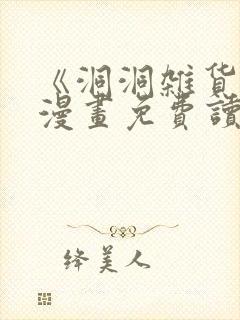 《洞洞雑货
漫畫免費讀
绛美人